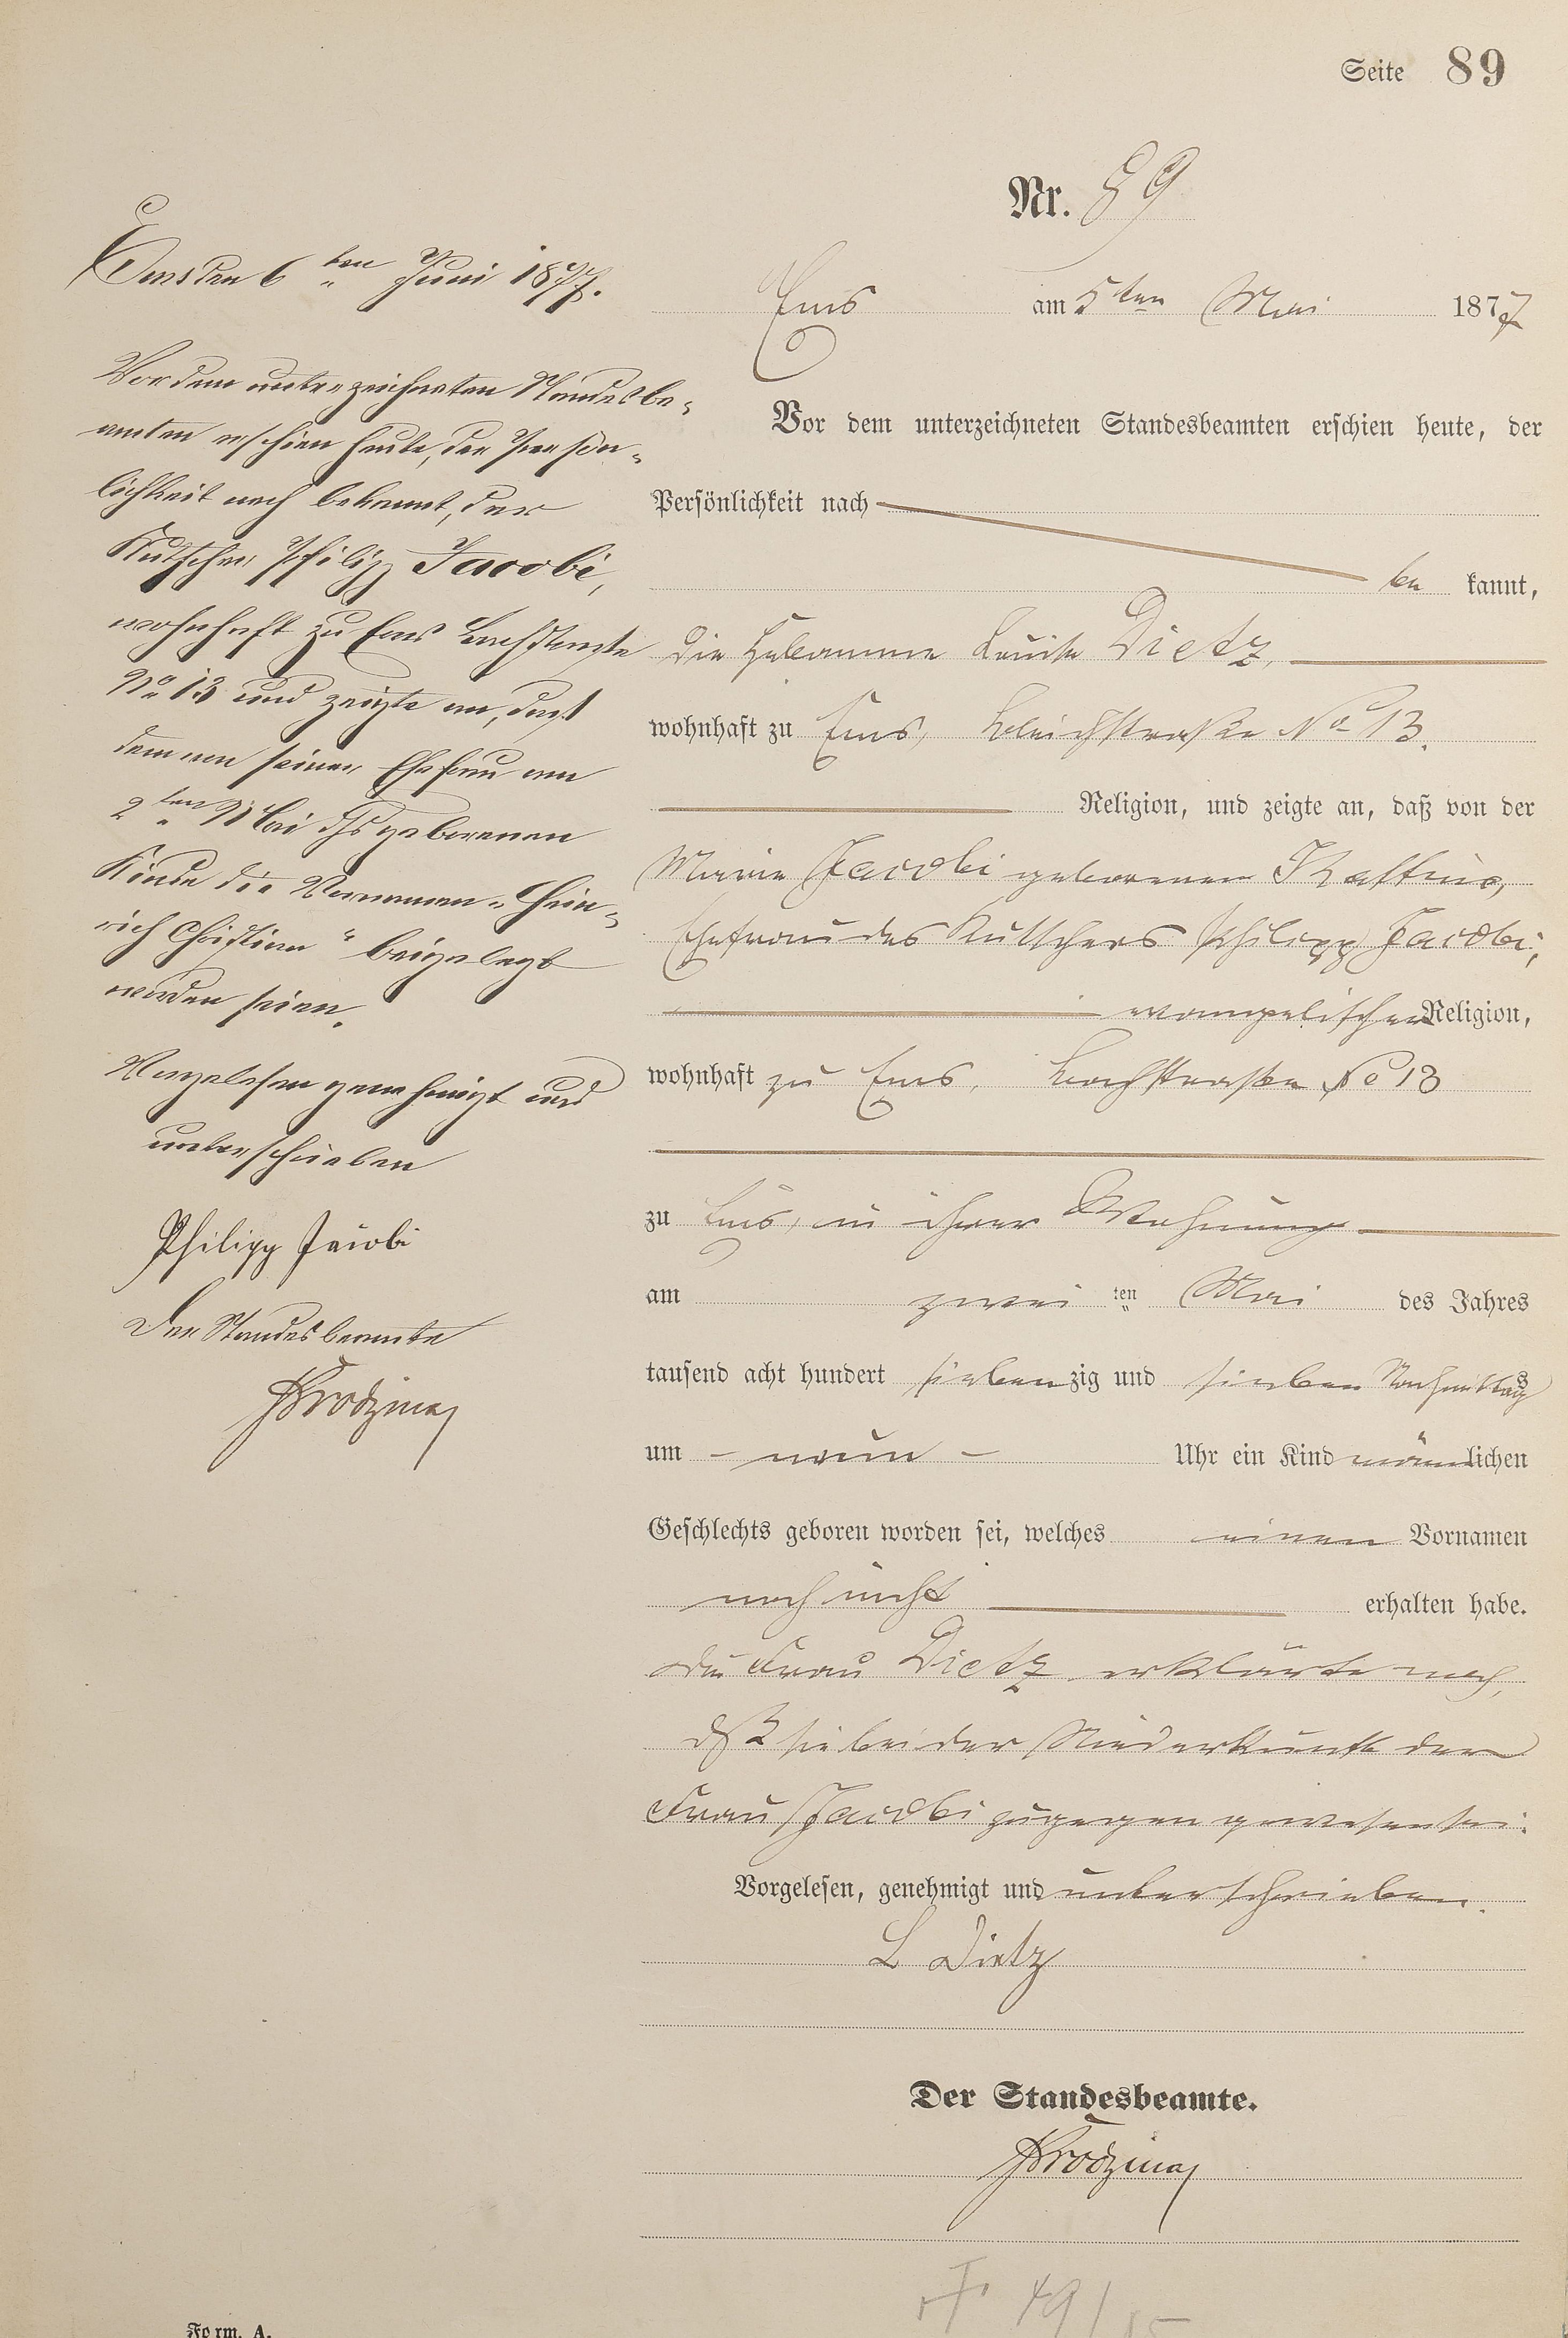 Seite 89
Nr. 89
Ems am 5ten Mai 1877
Vor dem unterzeichneten Standesbeamten erschien heute, der
Persönlichkeit nach
be kannt,
die Hebamme Louise Dietz,
wohnhaft zu Ems, Bleichstraße No 13.
Religion, und zeigte an, daß von der
Marie Jacobi geborenen
Ehefrau des Kutschers Philipp Jacobi,
evangelischer Religion,
wohnhaft zu Ems, Bachstraße No 13
zu Ems, in ihrer Wohnung
am zwei ten Mai des Jahres
tausend acht hundert siebenzig und sieben Nachmittags
um - neun - Uhr ein Kind männlichen
Geschlechts geboren worden sei, welches einen Vornamen
noch nicht erhalten habe.
Die Frau Dietz erklärte noch,
daß sie bei der Niederkunft der
Frau Jacobi zugegen gewesen sei.
Vorgelesen, genehmigt und unterschrieben.
L Dietz
Der Standesbeamte.
Ems den 6ten Juni 1877.
Vor dem unterzeichneten Standesbe-
amten erschien heute, der Persön-
lichkeit nach bekannt, der
Kutscher Philipp Jacobi,
wohnhaft zu Ems Bachstraße
No 13 und zeigte an, daß
dem von seiner Ehefrau am
2ten Mai dJs geborenen
Kinde die Vornamen „Hein-
rich Christian" beigelegt
worden seien.
Vorgelesen genehmigt und
unterschrieben
Philipp Jacobi
Der Standesbeamte
Form. A.